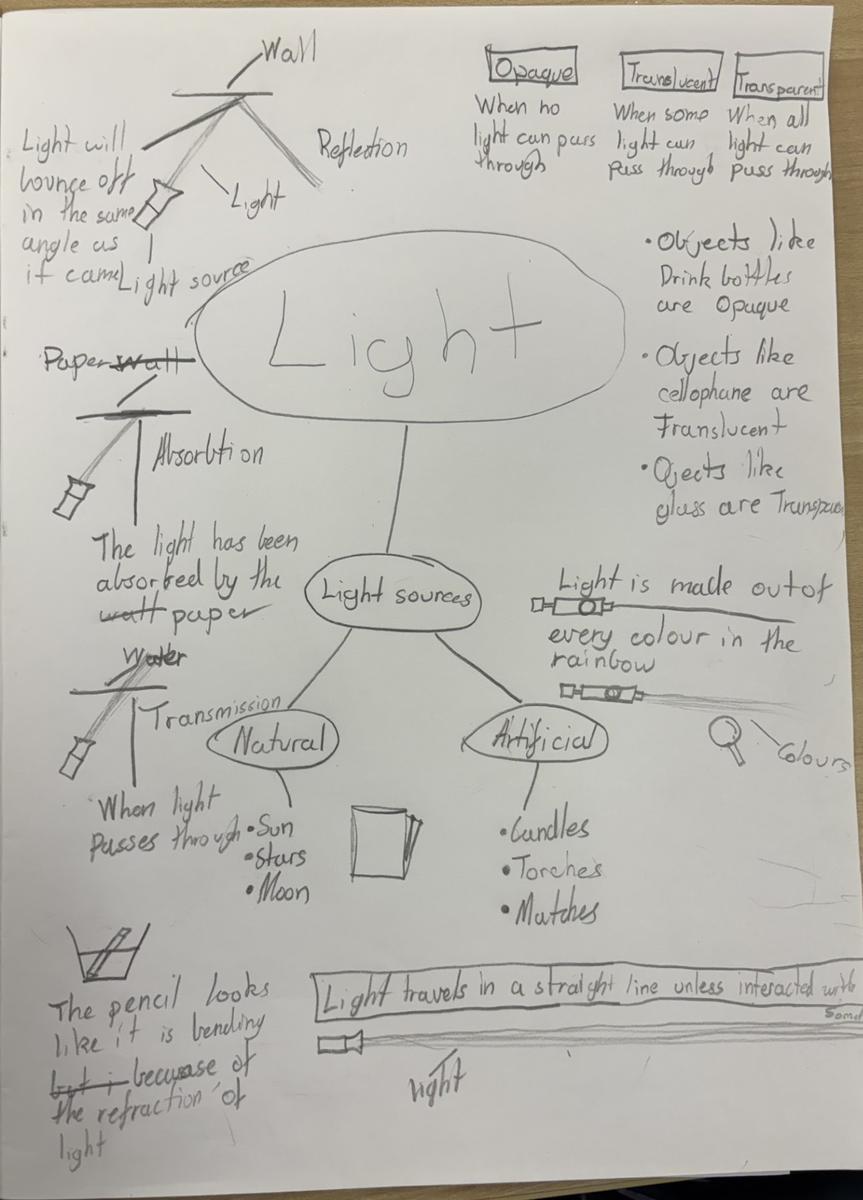 Wall
Light will
bounce off
in the same
angle as
it came
Reflection
Light
Light source
Opaque
When no
light can pass
through
Translucent
When some
light can
pass through
Transparent
When all
light can
pass through
Light
• Objects like
Drink bottles
are Opaque
• Objects like
cellophane are
Translucent
• Ojects like
glass are
Paper wall
Absorbtion
The light has been
absorbed by the
wall paper
Light sources
Light is made out of
every colour in the
rainbow
Colours
Water
Transmission
When light
Passes through
Natural
• Sun
• Stars
• Moon
Artificial
• Candles
• Torches
• Matches
The pencil looks
like it is bending
but i because of
the refraction of
light
Light travels in a straight line unless interacted with
light